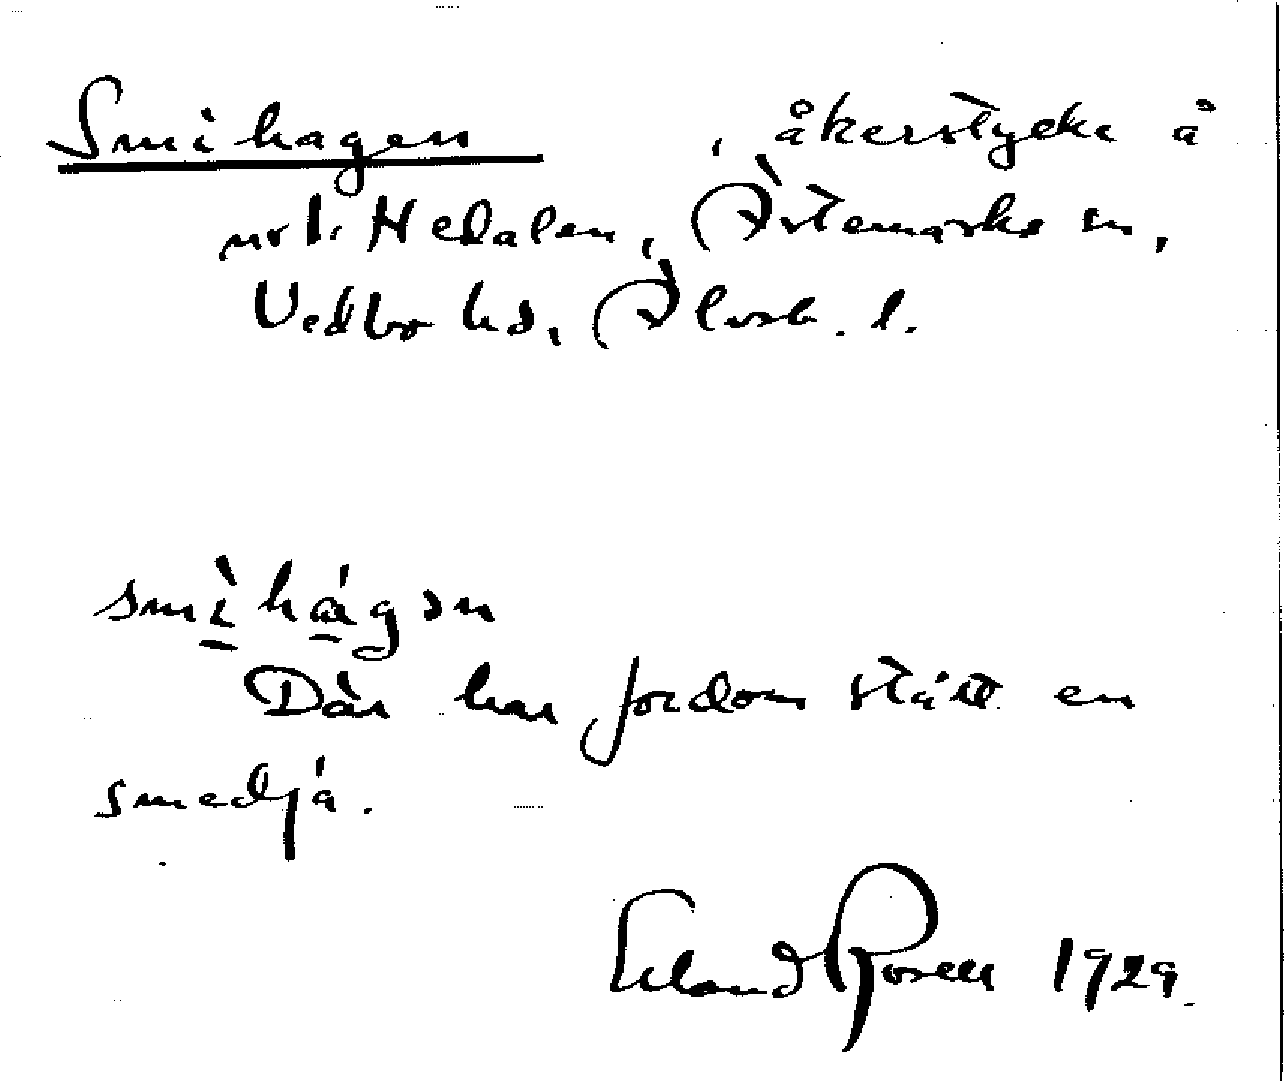 Smihagen , åkerstycke å
Nedalen, Ärtemarks sn,
Vedbo hd, Älvsb. l.
smìhágən
Där har fordom stått en
smedja.
Erland Rosell 1929.